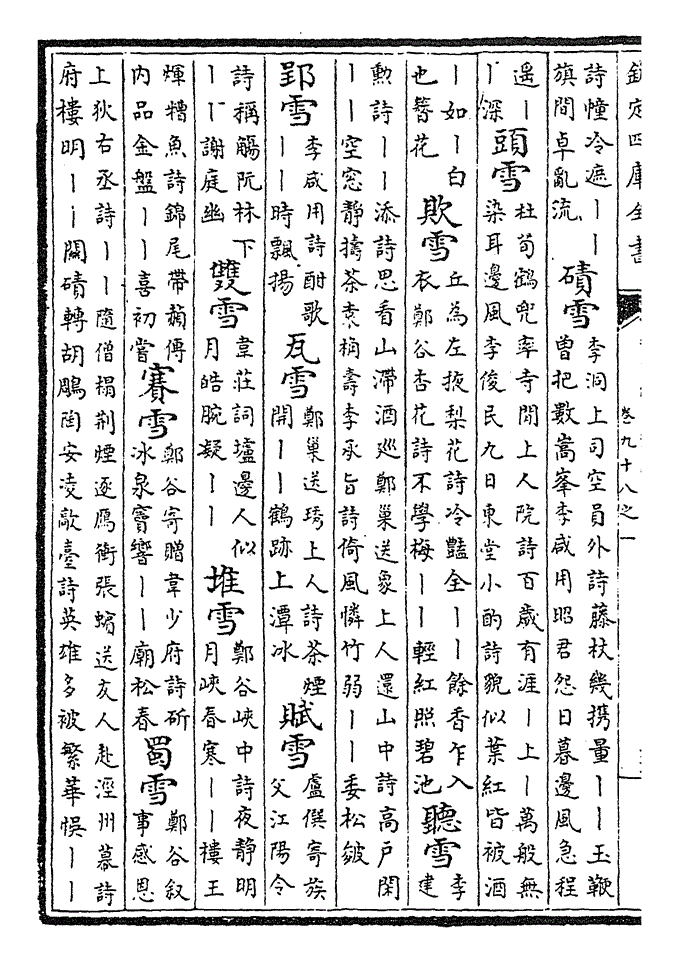 欽定四庫全書
卷九十八之一
詩幢冷遮丨丨
旗間卓亂流
磧雪
李洞上司空員外詩藤杖幾携量丨丨玉鞭
曾把數嵩峯李咸用昭君怨日暮邊風急程
遥丨
丨深
頭雪
杜荀鶴兜率寺閒上人院詩百歲有涯丨上丨萬般無
染耳邊風李俊民九日東堂小酌詩貌似葉紅皆被酒
丨如丨白
也簪花
欺雪
丘為左掖梨花詩冷豔全丨丨餘香乍入
衣鄭谷杏花詩不學梅丨丨輕紅照碧池
聽雪
李
建
勲詩丨丨添詩思看山滯酒廵鄭巢送象上人還山中詩高戸閑
丨丨空窓静擣茶柟壽李承旨詩倚風憐竹弱丨丨委松皴
郢雪
李咸用詩酣歌
丨丨時飄揚
瓦雪
鄭巢送琇上人詩茶煙
開丨丨鶴跡上潭冰
賦雪
盧僎寄族
父江陽令
詩稱觴阮林下
丨丨謝庭幽
雙雪
韋莊詞壚邊人似
月皓腕凝丨丨
堆雪
鄭谷峽中詩夜静明
月峽春寒丨丨樓王
煇糟魚詩錦尾帶赬傳
内品金盤丨丨喜初嘗
賽雪
鄭谷寄贈韋少府詩斫
冰泉竇響丨丨廟松春
蜀雪
鄭谷叙
事感恩
上狄右丞詩丨丨隨僧榻荆煙逐雁衝張蠙送友人赴涇州幕詩
府樓明丨丨關磧轉胡鵰陶安凌歊臺詩英雄多被繁華悞丨丨